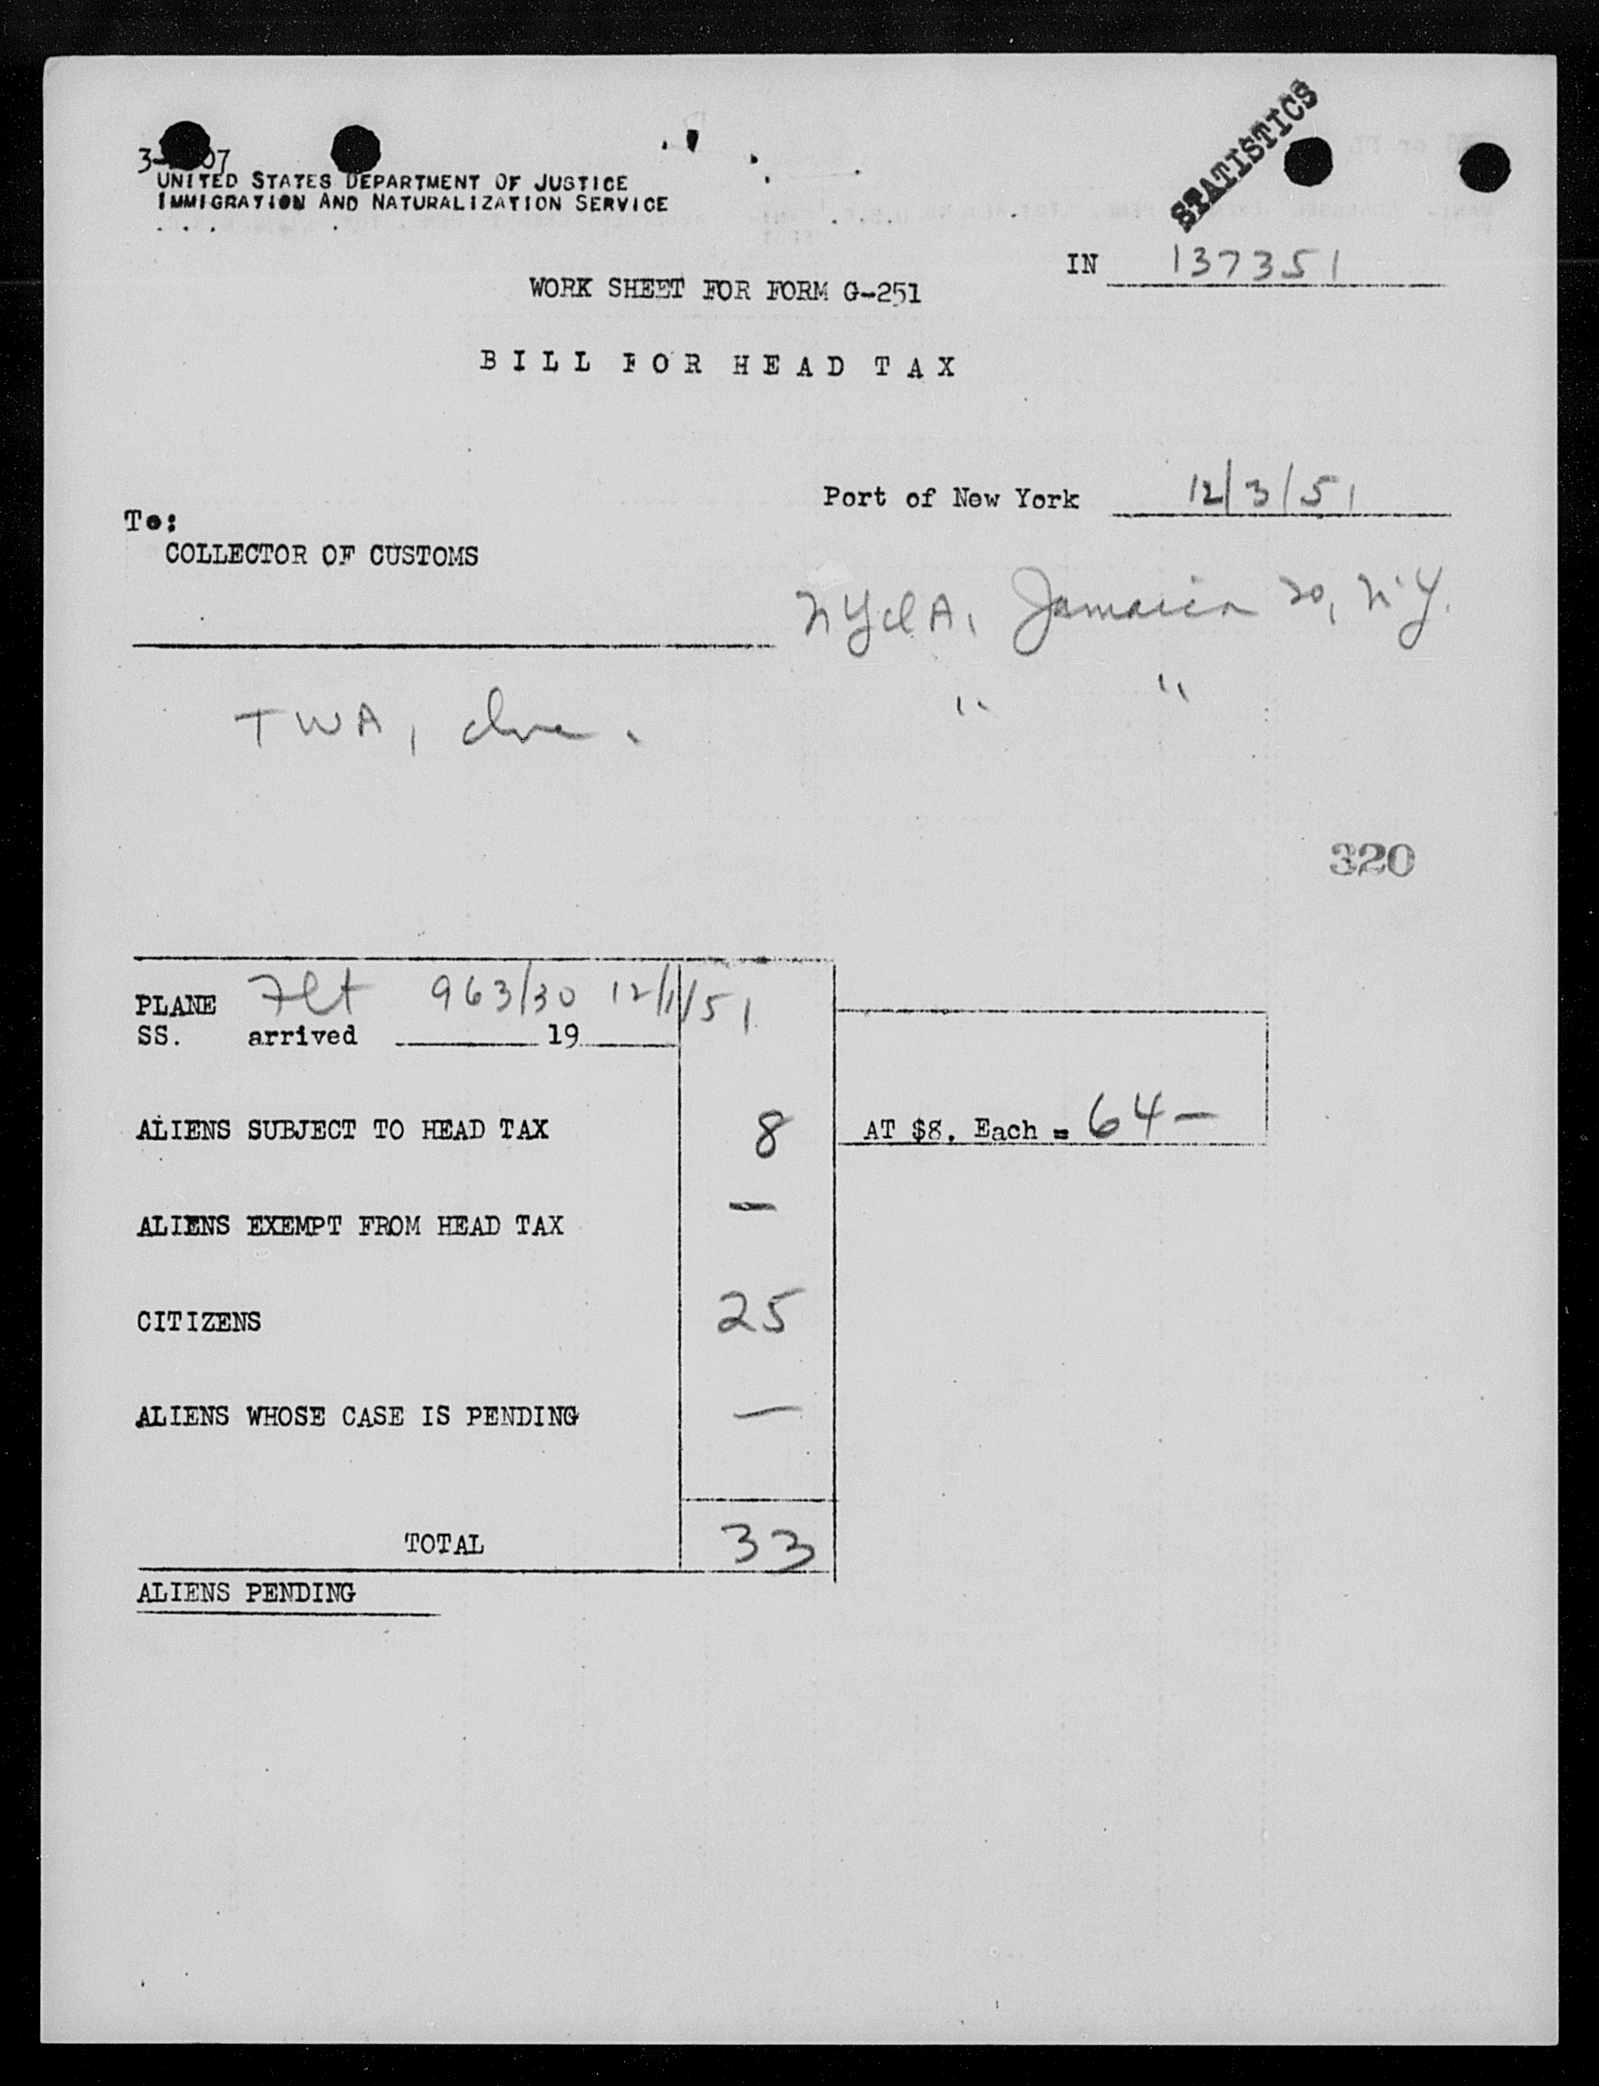 STATISTICS
UNITED STATES DEPARTMENT OF JUSTICE
IMMIGRATION AND NATURALIZATION SERVICE
IN 137351
WORK SHEET FOR FORM G-251
BILL FOR HEAD TAX
Port of New York 12/3/51
To:
COLLECTOR OF CUSTOMS
Jamaica 20, N.Y.
" "
TWA,
320
PLANE Flt 963/30 12/1/51
SS. arrived 19
ALIENS SUBJECT TO HEAD TAX 8 AT $8. Each = 64-
ALIENS EXEMPT FROM HEAD TAX -
CITIZENS 25
ALIENS WHOSE CASE IS PENDING -
TOTAL 33
ALIENS PENDING